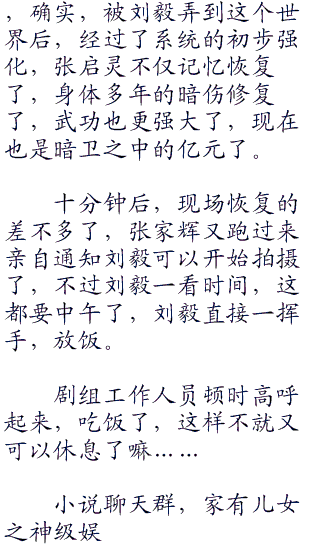 ，确实，被刘毅弄到这个世
界后，经过了系统的初步强
化，张启灵不仅记忆恢复
了，身体多年的暗伤修复
了，武功也更强大了，现在
也是暗卫之中的亿元了。
十分钟后，现场恢复的
差不多了，张家辉又跑过来
亲自通知刘毅可以开始拍摄
了，不过刘毅一看时间，这
都要中午了，刘毅直接一挥
手，放饭。
剧组工作人员顿时高呼
起来，吃饭了，这样不就又
可以休息了嘛……
小说聊天群，家有儿女
之神级娱